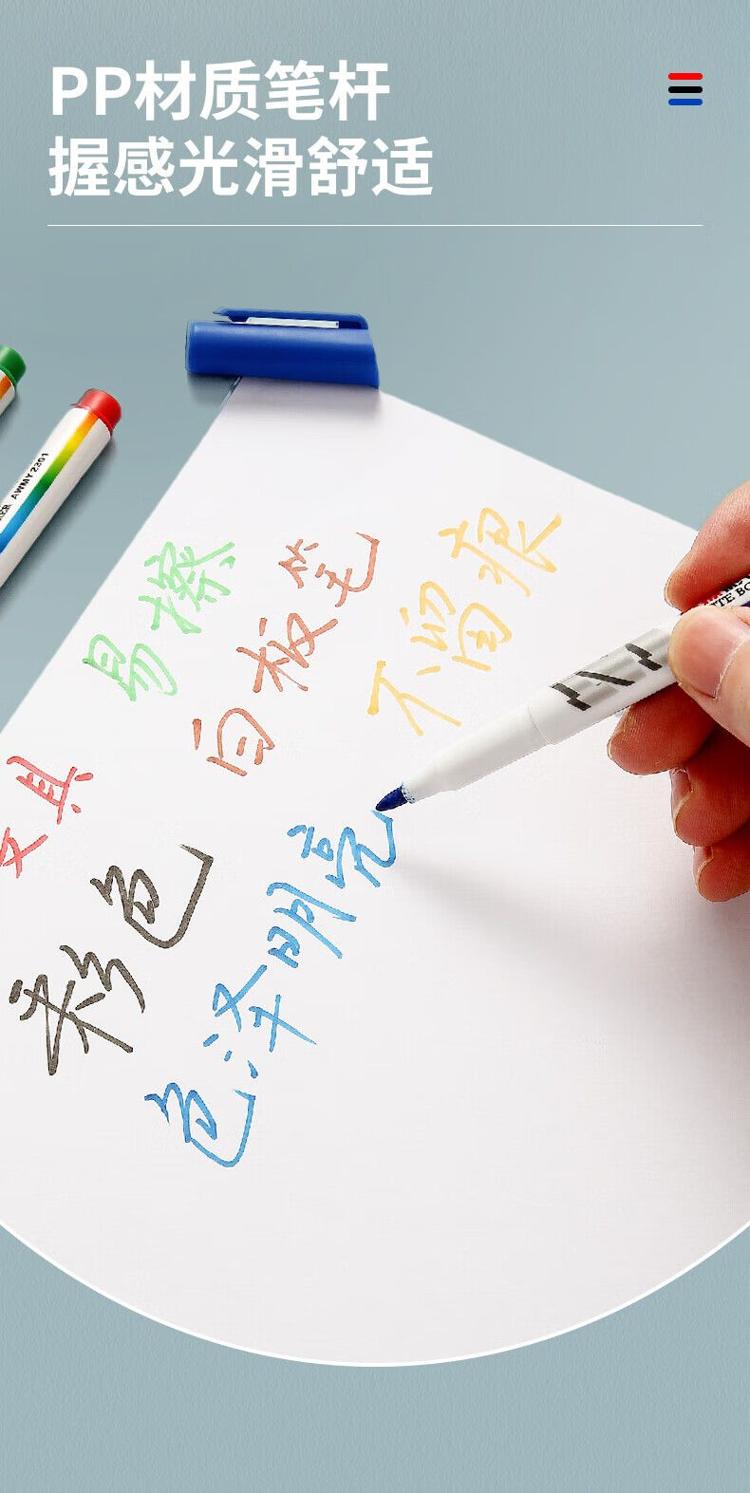 PP材质笔杆
握感光滑舒适
AWMY2301
易擦
白板笔
不留痕
文具
彩色
色泽明亮